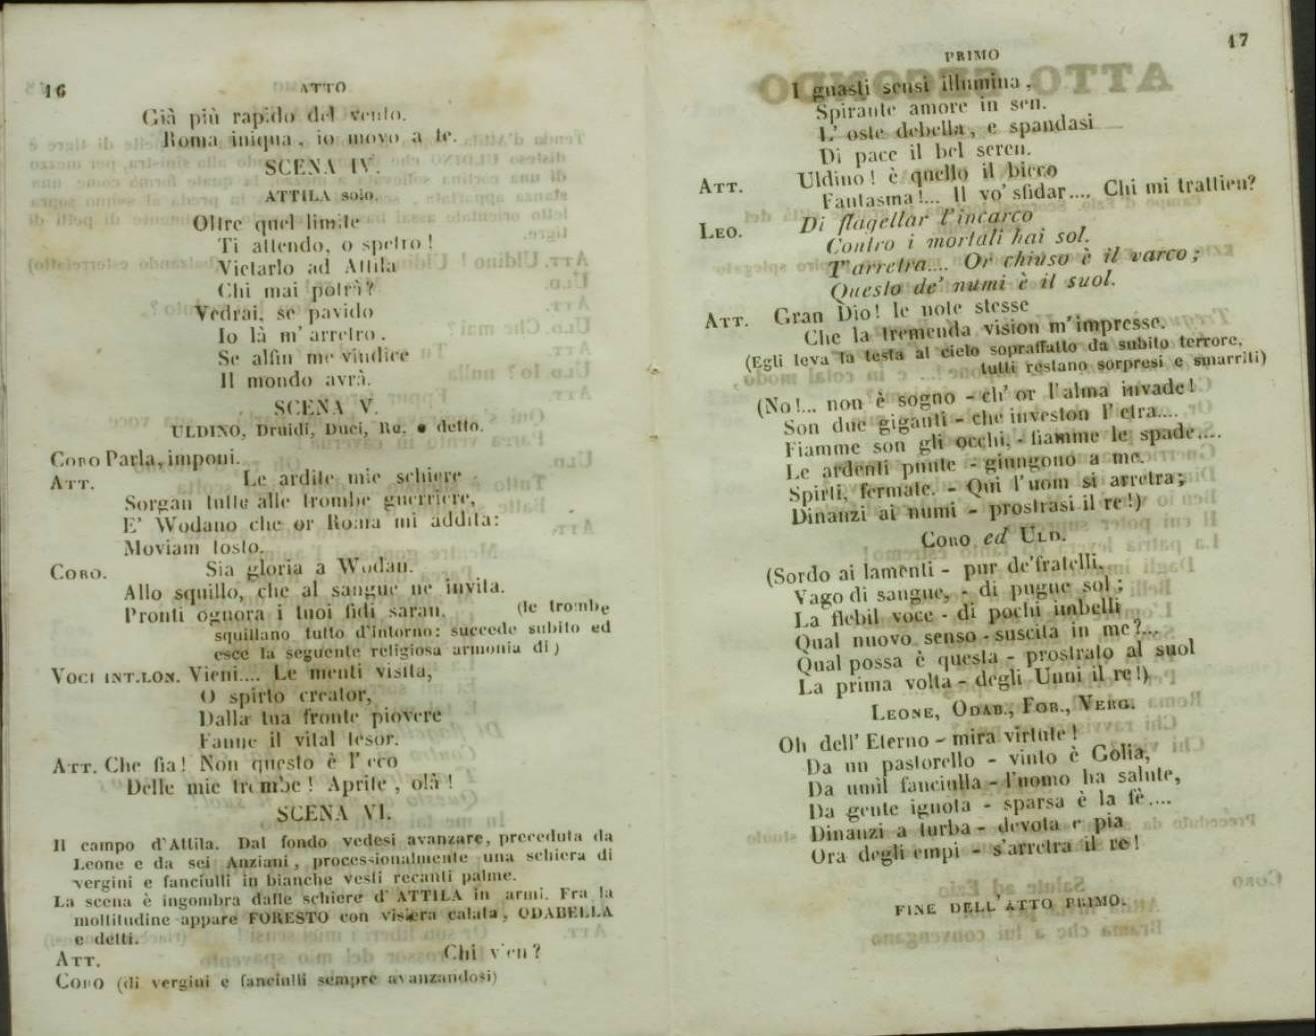 16
ATTO
Già più rapido del vento.
Roma iniqua, io movo a te.
SCENA IV.
ATTILA solo.
Oltre quel limite
Ti attendo, o spettro!
Vietarlo ad Attila
Chi mai potrà?
Vedrai, se pavido
Io là m'arretro.
Se alfin me vindice
Il mondo avrà.
SCENA V.
ULDINO, Druidi, Duci, Re, e detto.
CORO Parla, imponi.
ATT. Le ardite mie schiere
Sorgan tutte alle trombe guerriere,
E' Wodano che or Roma mi addita:
Moviam tosto.
CORO. Sia gloria a Wodan.
Allo squillo, che al sangue ne invita.
Pronti ognora i tuoi fidi saran. (le trombe
squillano tutto d'intorno: succede subito ed
esce la seguente religiosa armonia di)
VOCI INT.LON. Vieni.... Le menti visita,
O spirto creator,
Dalla tua fronte piovere
Fanne il vital tesor.
ATT. Che fia! Non questo è l'eco
Delle mie trombe! Aprite, olà!
SCENA VI.
Il campo d'Attila. Dal fondo vedesi avanzare, preceduta da
Leone e da sei Anziani, processionalmente una schiera di
vergini e fanciulli in bianche vesti recanti palme.
La scena è ingombra dalle schiere d'ATTILA in armi. Fra la
moltitudine appare FORESTO con visiera calata, ODABELLA
e detti.
ATT. Chi vien?
CORO (di vergini e fanciulli sempre avanzandosi)
17
PRIMO
I guasti sensi illumina,
Spirante amore in sen.
L'oste debella, e spandasi
Di pace il bel seren.
ATT. Uldino! è quello il bieco
Fantasma!... Il vo' sfidar.... Chi mi trattien?
LEO. Di flagellar l'incarco
Contro i mortali hai sol.
T'arretra.... Or chiuso è il varco;
Questo de' numi è il suol.
ATT. Gran Dio! le note stesse
Che la tremenda vision m'impresse.
(Egli leva la testa al cielo sopraffatto da subito terrore,
tutti restano sorpresi e smarriti)
(No!... non è sogno - ch' or l'alma invade!
Son due giganti - che investon l'etra....
Fiamme son gli occhi, - fiamme le spade....
Le ardenti punte - giungono a me.
Spirti, fermate. - Qui l'uom si arretra;
Dinanzi ai numi - prostrasi il re!)
CORO ed ULD.
(Sordo ai lamenti - pur de' fratelli,
Vago di sangue, - di pugne sol;
La flebil voce - di pochi imbelli
Qual nuovo senso - suscita in me?...
Qual possa è questa - prostrato al suol
La prima volta - degli Unni il re!)
LEONE, ODAB., FOR., VERG.
Oh dell' Eterno - mira virtute!
Da un pastorello - vinto è Golia,
Da umil fanciulla - l'uomo ha salute,
Da gente ignota - sparsa è la fè....
Dinanzi a turba - devota e pia
Ora degli empi - s'arretra il re!
FINE DELL'ATTO PRIMO.